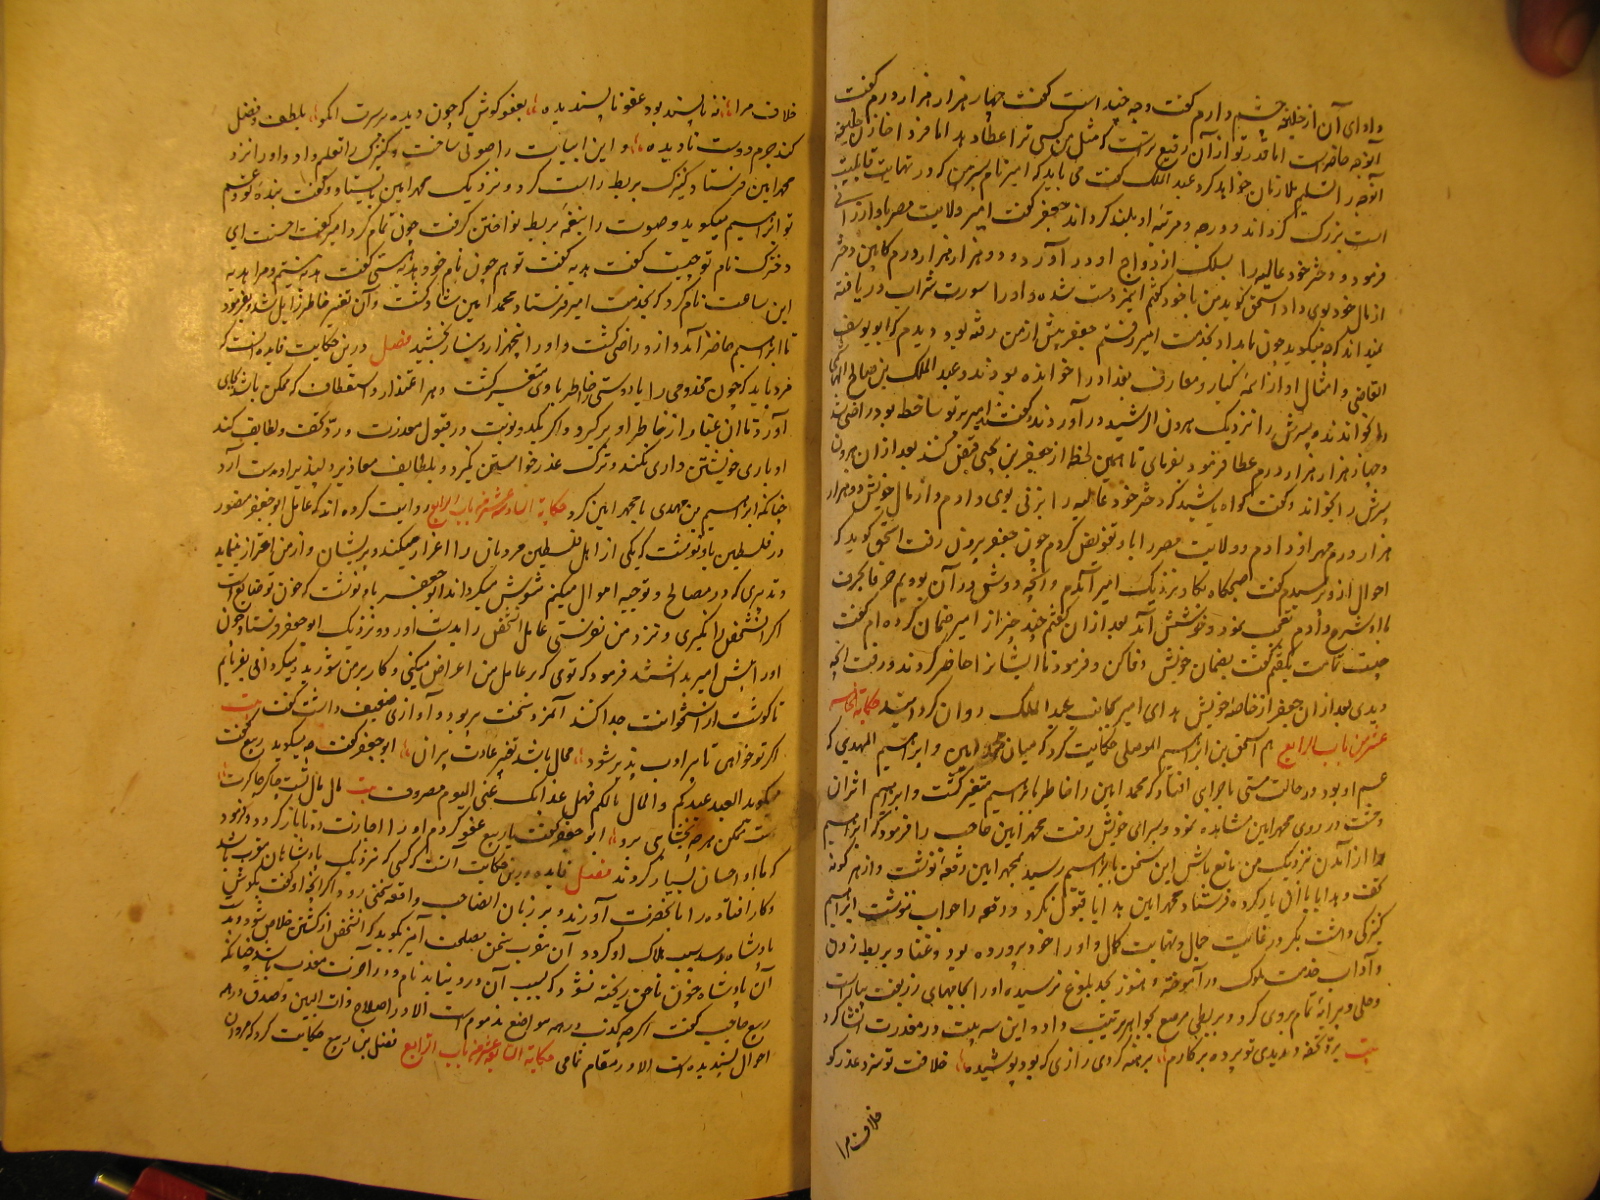 و ادای آن از خلیفه چشم دارم گفت وجه چند است گفت چهار هزار هزار درم گفت
این وجه حاضر است اما قدر تو از آن رفیع تر است که مثل من کسی ترا عطا دهد اما فردا خازن خلیفه
آن وجه را تسلیم ملازمان خواهد کرد عبد الملک گفت می باید که امیر نام پسر من که در نهایت قابلیت
است بزرک گرداند و درجه و مرتبه او بلند گرداند جعفر گفت امیر ولایت مصر باو ارزانی
فرمود و دختر خود عالیه را بسلک ازدواج او در آورد و دو هزار هزار درم کابین دختر
از مال خود بوی داد اسحق گوید من با خود گفتم امیر مست شده و او را سورت شراب دریافته
نمیداند که چه میگوید چون بامداد بخدمت امیر رفتم جعفر پیش از من رفته بود دیدم که ابو یوسف
القاضی و امثال او از ائمه کبار و معارف بغداد را خوانده بودند و عبد الملک بن صالح الهاشمی
را بخواندند و پسرش را نزدیک هرون الرشید در آوردند و گفت امیر بر تو ساخط بود راضی شد
و چهار هزار هزار درم عطا فرمود بفرمای تا همین لحظه از جعفر بن یحیی قبض کنند بعد از آن هرون
پسرش را بخواند و گفت گواه باشید که دختر خود عالیه را بزنی بوی دادم و از مال خویش دو هزار
هزار درم مهر او دادم و ولایت مصر را باو تفویض کردم چون جعفر بیرون رفت اسحق گوید که
احوال از و پرسیدم گفت صبحگاه پگاه نزدیک امیر آمدم و آنچه دوش در آن بودیم حرفا بحرف
باو شرح دادم تعجب نمود و خوشش آمد بعد از آن گفتم چند چیز از امیر ضمان کرده ام گفت
چیست تمامت بگفتم گفت بضمان خویش وفا کن و فرمود تا ایشانرا حاضر کردند و رفت آنچه
دیدی بعد از آن جعفر از خاصه خویش هدای امیر بخانه عبد الملک روان کردانید حکایة الخامسه
عشر من باب الرابع هم اسحق بن ابراهیم الموصلی حکایت کرد که میان محمد امین و ابراهیم المهدی که
عم او بود در حالت مستی ماجرای افتاد که محمد امین را خاطر با ابراهیم متغیر گشت و ابراهیم اثر آن
وحشت در روی محمد امین مشاهده نمود و بسرای خویش رفت محمد امین حاجب را فرمود که ابراهیم
را از آمدن نزدیک من مانع باش این سخن با ابراهیم رسید بمحمد امین رقعه نوشت و از هر گونه
تحف و هدایا با آن یار کرده فرستاد محمد امین هدایا قبول نکرد و رقعه را جواب ننوشت ابراهیم
کنیزکی داشت بکر در غایت جمال و نهایت کمال و او را خود پرورده بود و غنا و بربط زدن
و آداب خدمت ملوک در آموخته و هنوز بحد بلوغ نرسیده او را بجامهای زربفت بیاراست
و حلی و پیرایه تمام بروی کرد و بربطی مرصع بجواهر ترتیب داد و این سه بیت در معذرت انشا کرد
بیت پرده تحفه دریدی تو پرده بر کارم برهنه کردی رازی که بود پوشیده خلافت تو سزد عذر کو
خلاف مرا
خلاف مرا نه پسند بود عفو ناپسندیده بعفو کوش که چون دیده بر سرت بلطف و فضل
کند جرم دوست نادیده و این ابیات را صوتی ساخت و کنیزک را تعلیم داد و او را نزد
محمد امین فرستاد کنیزک بربط راست کرد و نزدیک محمد امین بایستاد و گفت بنده تو و عم
تو ابراهیم میگوید و صوت را بنغمه بربط نواختن گرفت چون تمام کرد امیر گفت احسنت ای
دخترک نام تو چیست گفت هدیه گفت تو هم چون نام خود هدیه هستی گفت هدیه هستم و مرا هدیه
این ساعت نام کرد که بخدمت امیر فرستاد محمد امین شاد گشت و آن تغیر خاطر زایل شد و بفرمود
تا ابراهیم حاضر آمد و از و راضی گشت و او را پنجهزار دینار بخشید فصل درین حکایت فایده آنست که
مرد باید که چون مخدومی را یا دوستی را خاطر با وی متغیر گشت و بهر اعتذار و استعطاف که ممکن باشد بجای
آورد تا آن غبار از خاطر او برگیرد و اگر یکدو نوبت در قبول معذرت و رد تحف و لطایف کند
او باری خویشتن داری نکند و ترک عذر خواستن نگیرد و بلطایف معاذیر دلپذیر او بدست آرد
چنانکه ابراهیم بن مهدی با محمد امین کرد حکایة السادسه عشر من باب الرابع روایت کرده اند که عامل ابو جعفر منصور
در فلسطین باو نوشت که یکی از اهل فلسطین مردمان را اغرا میکند و پریشان و از من احتراز مینماید
و تدبیری که در مصالح و توجیه اموال میکنم مشوش میگرداند ابو جعفر نامه نوشت که خون تو ضایع است
اگر آن شخص را نگیری و نزد من نفرستی عامل آن شخص را بدست آورد و نزدیک ابو جعفر فرستاد چون
او را پیش امیر بداشتند فرمود که توی که بر عامل من اعراض میکنی و کار بر من شوریده میگردانی بفرمایم
تا گوشت از استخوانت جدا کنند آن مرد سخت پیر بود و آوازی ضعیف داشت گفت بیت
اگر تو خواهی تا پیر ادب پذیر شود محال باشد تغییر عادت پیران ابو جعفر گفت چه میگوید ربیع گفت
میگوید العبد عبدکم و المال مالکم فهل عذابک عنی الیوم مصروف بیت مال مال تست چاکر چاکرت
ابو جعفر گفت یا ربیع عفو کردم او را اجازت ده تا باز گردد و با خود
که با او احسان بسیار کردند فصل فایده درین حکایت آنست که کسی که نزدیک پادشاهان مقرب باشد
و کار افتاده را بحضرت آورند و بر زبان آن صاحب واقعه سخنی رود اگر آنچه او گفت بگوش
پادشاه رسد سبب هلاک او گردد آن مقرب سخن مصلحت آمیز بگوید که آن شخص از کشتن خلاص شود و بد
آن پادشاه خون ناحق ریخته نشود که بسبب آن در دنیا بد نام و در آخرت معذب باشد چنانکه
ربیع حاجب گفت اگر چه کذب در همه مواضع مذموم است الا در اصلاح ذات البین و صدق در همه
احوال پسندیده است الا در مقام نمامی حکایة السابع عشر من باب الرابع فضل بن ربیع حکایت کرد که هرون